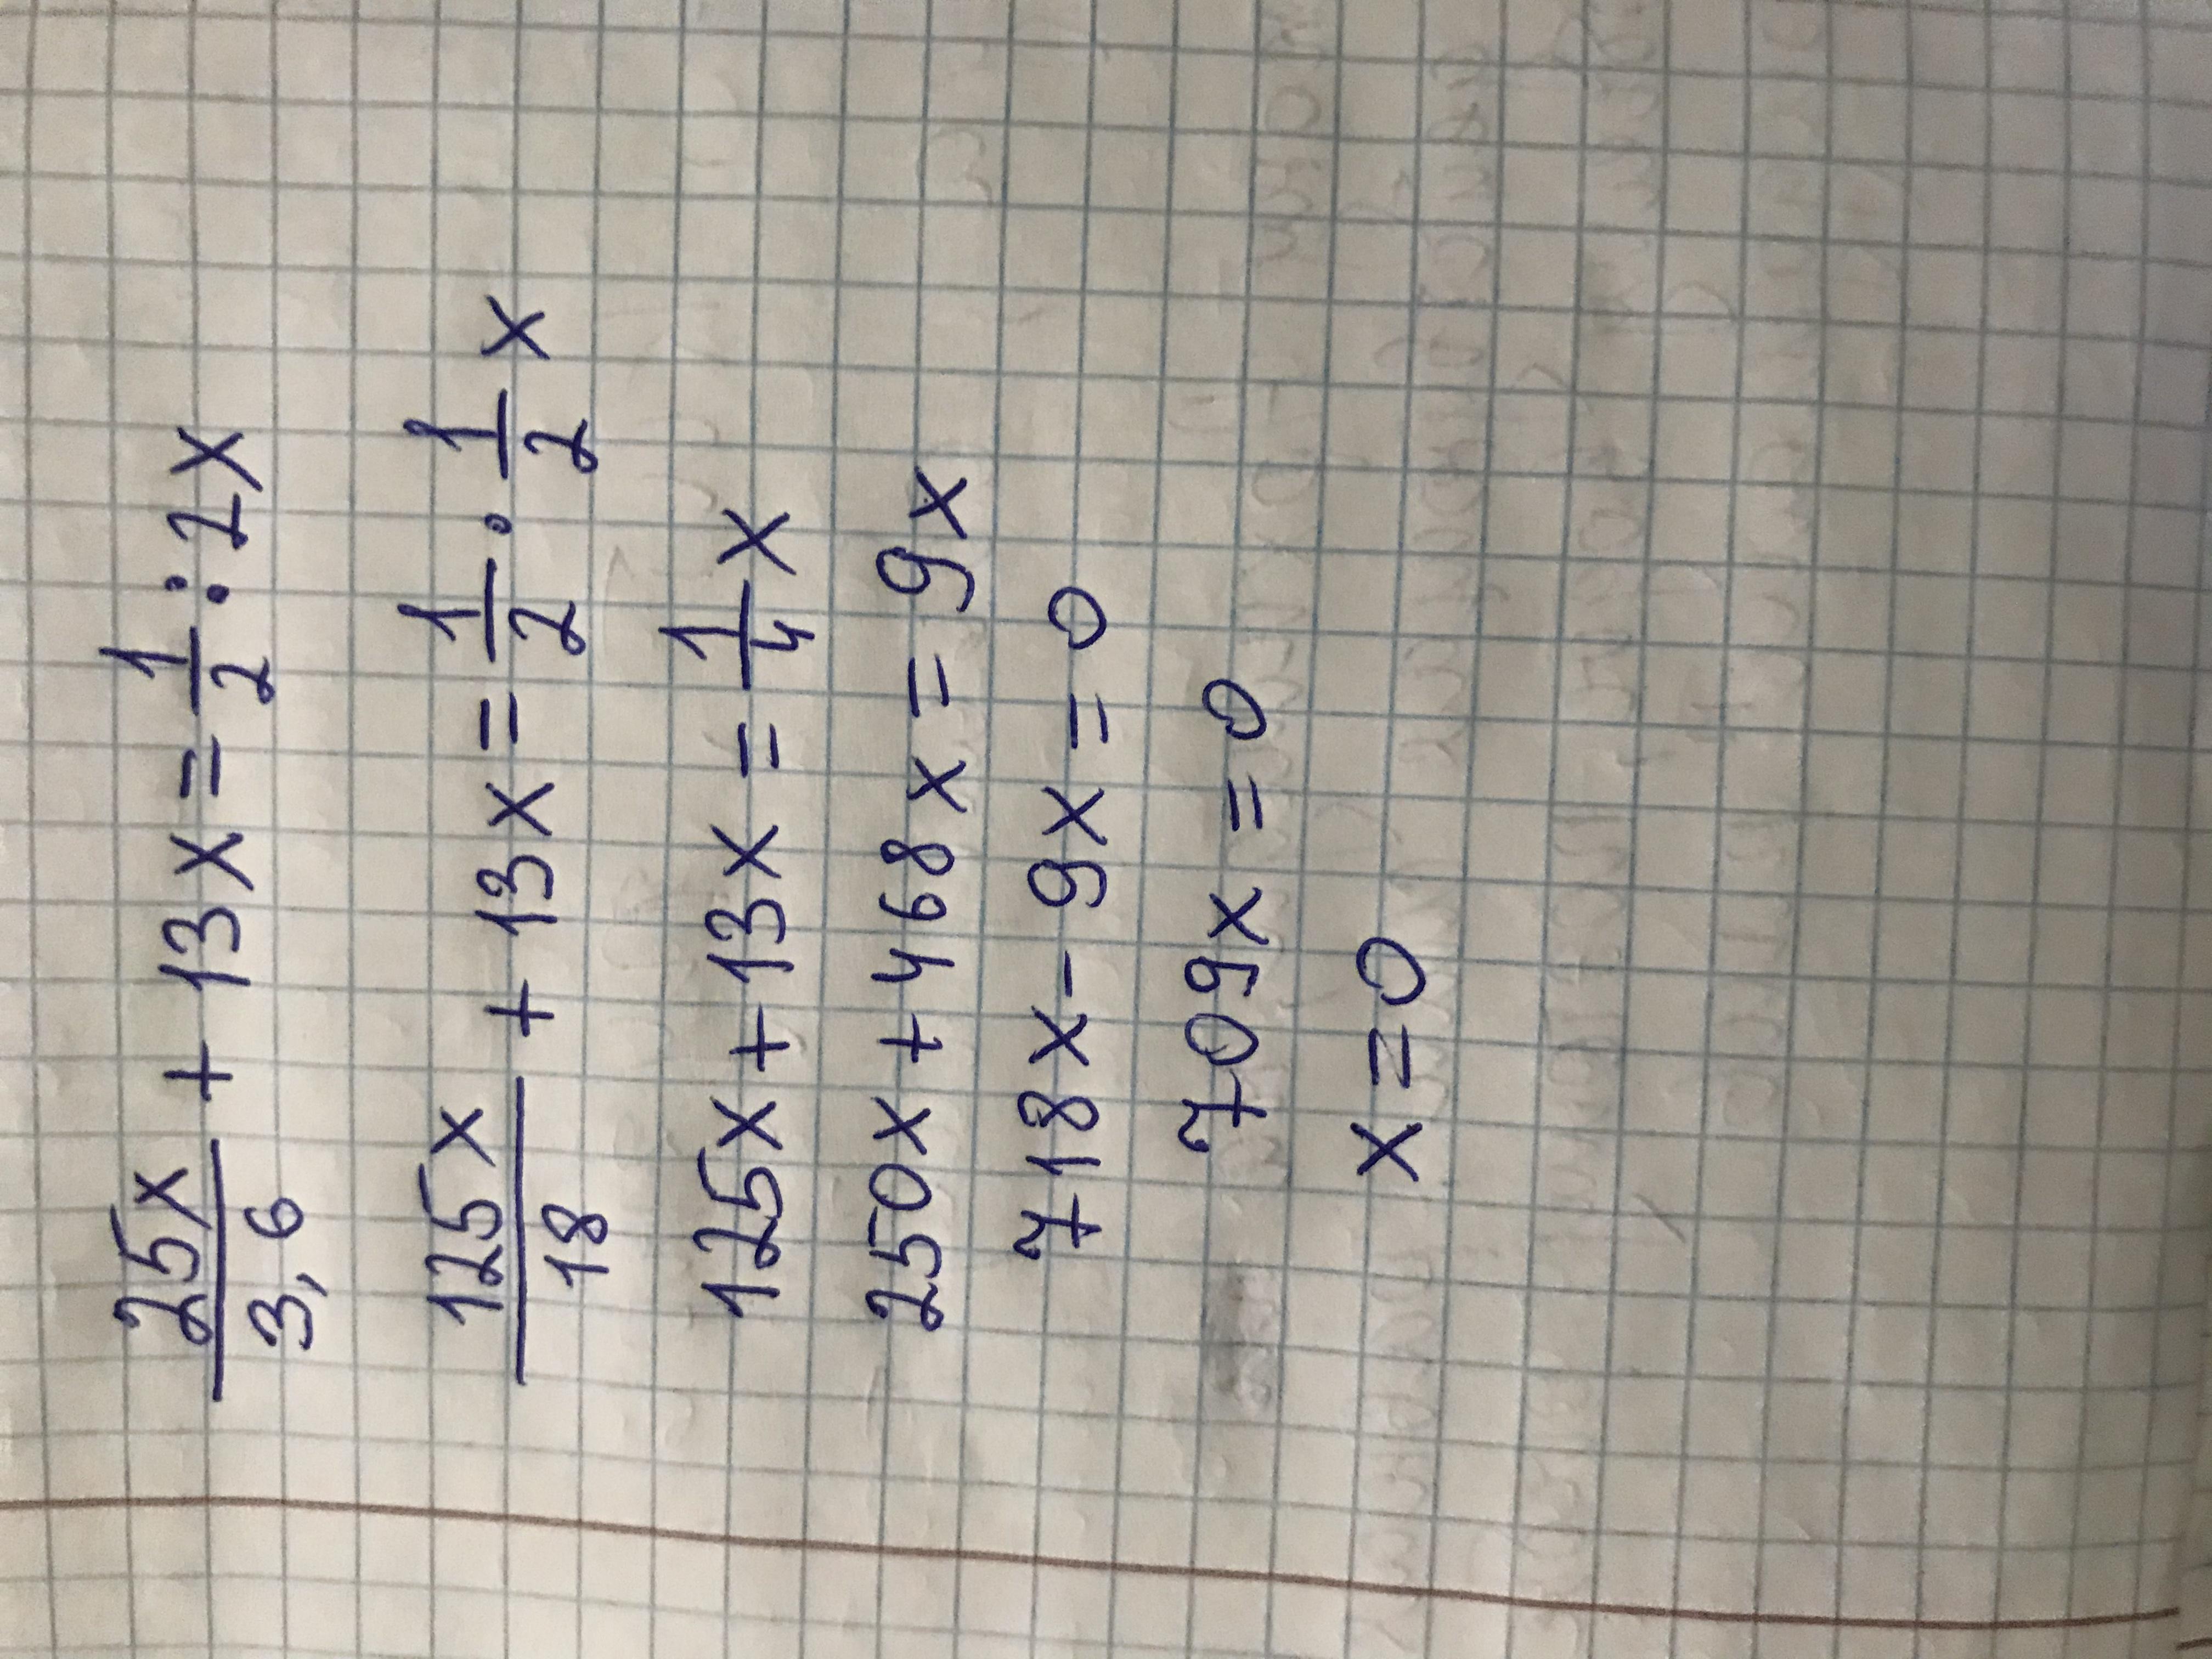 25x/3,6 + 13x = 1/2 : 2x
125x/18 + 13x = 1/2 · 1/2 x
125x + 13x = 1/4 x
250x + 468x = 9x
718x - 9x = 0
709x = 0
x = 0